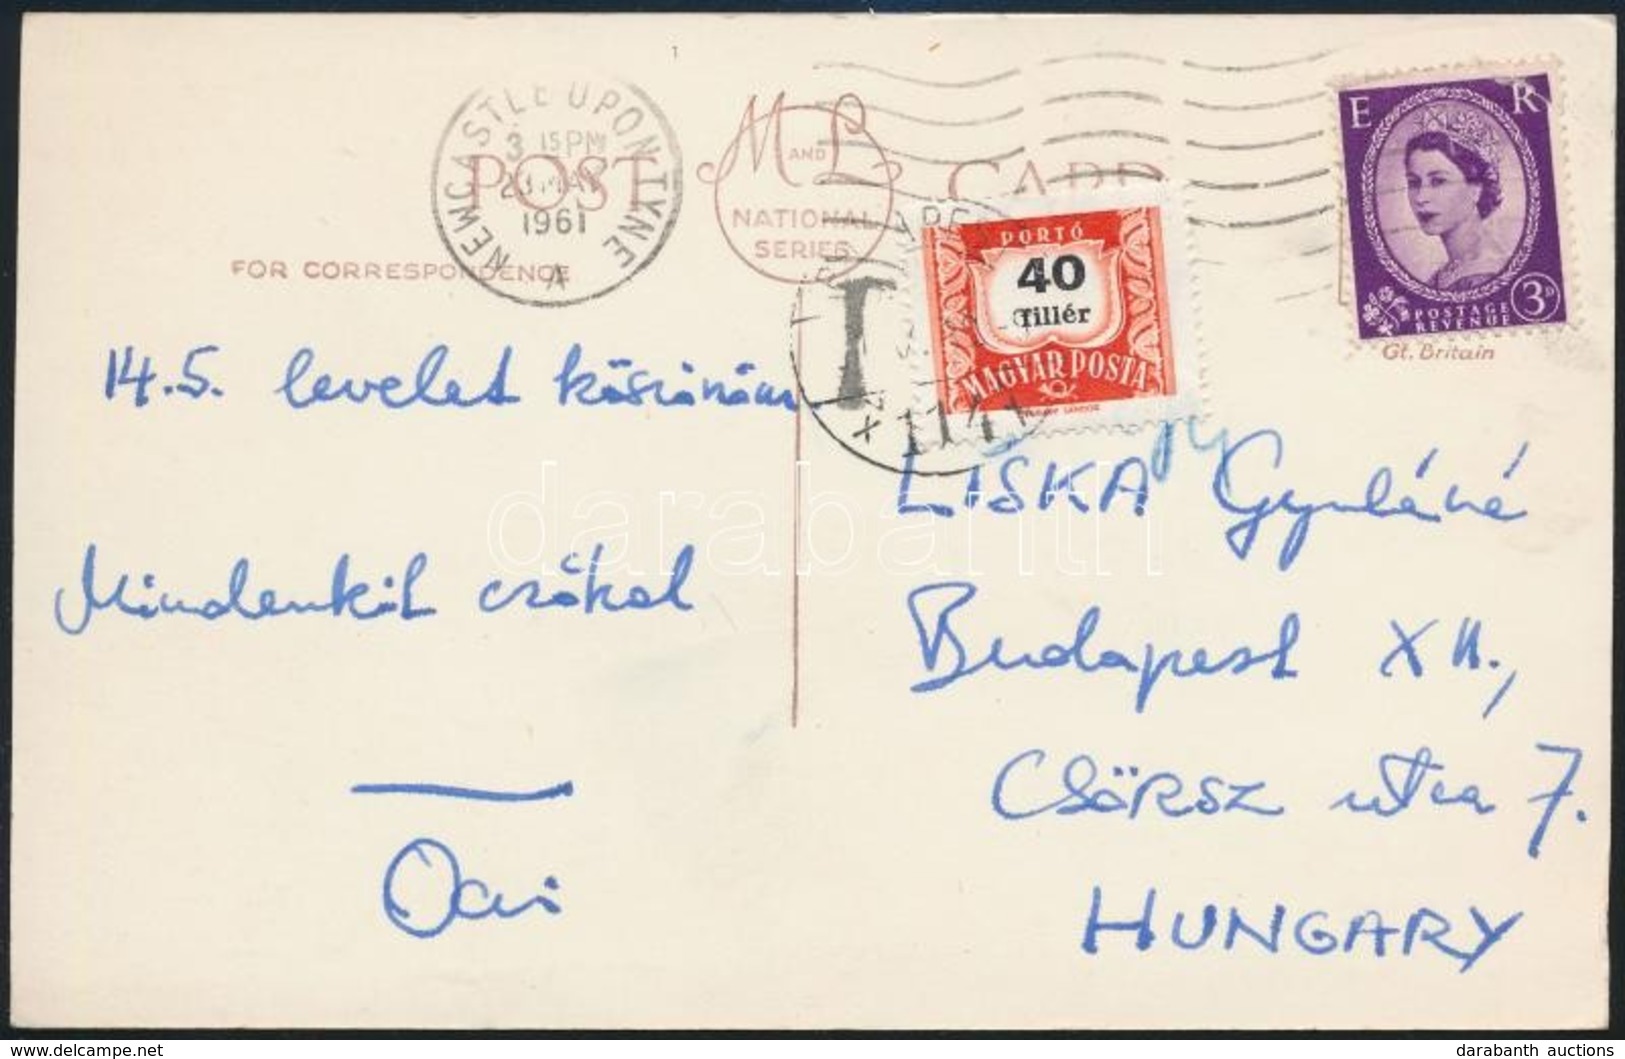 NEWCASTLE UPON TYNE
3 15 PM
MAY
1961
A
POST CARD
M AND L
NATIONAL
SERIES
FOR CORRESPONDENCE
E R
POSTAGE
REVENUE
3D
Gt. Britain
PORTÓ
40
fillér
MAGYAR POSTA
T
14.5. levelet köszönöm
Mindenkit csókol
LISKA Gyuláné
Budapest XII.,
CSÖRSZ utca 7.
HUNGARY
darabanth
www.delcampe.net
darabanth auctions